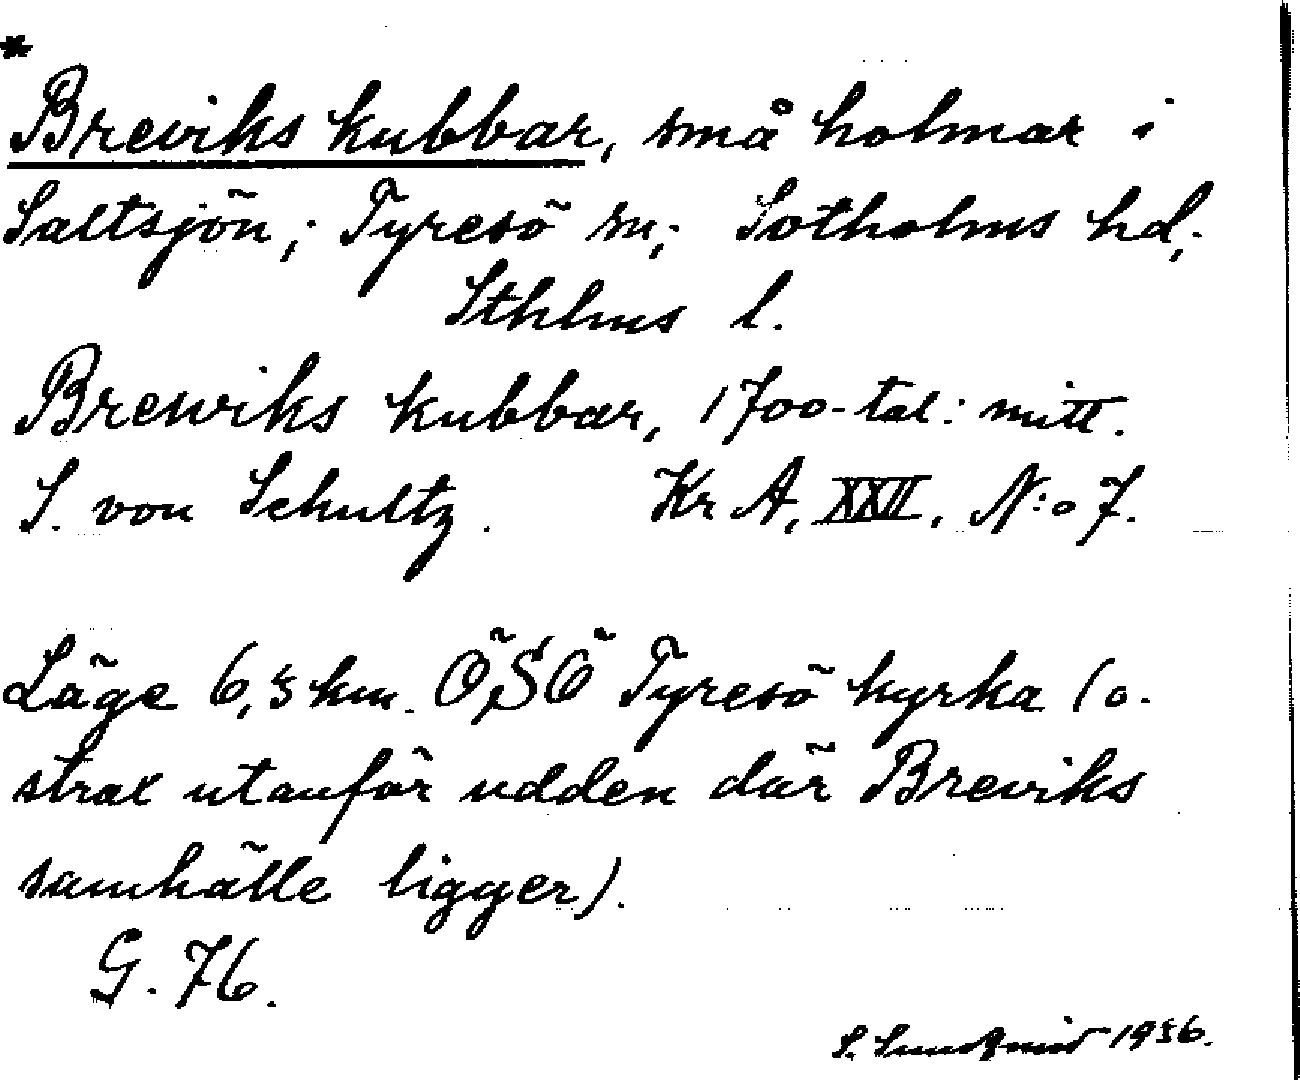 *
Breviks kubbar, små holmar i
Saltsjön; Tyresö sn; Sotholms hd;
Sthlms l.
Brewiks kubbar, 1700-tal: mitt.
S. von Schultz. Kr A, XXII, N:o 7.
Läge 6,5 km. ÖSÖ Tyresö kyrka (o-
strax utanför udden där Breviks
samhälle ligger).
G. 76.
S. 1956.